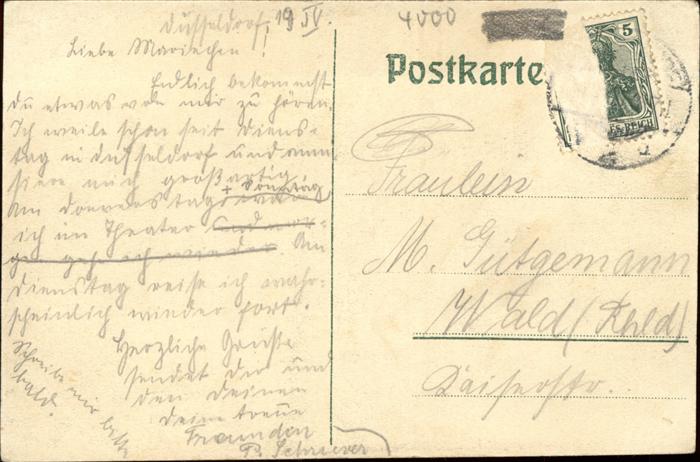 Düsseldorf, 19 IV.
Liebe Mariechen!
Endlich bekommst
Du etwas von mir zu hören.
Ich weile schon seit Diens-
tag in Düsseldorf und amü-
siere mich großartig.
Am Donnerstag war
+ Sonntag
ich im Theater und mor-
gen gehe ich wieder. Am
Dienstag reise ich wahr-
scheinlich wieder fort.
Herzliche Grüße
sendet Dir und
den Deinen
deine treue
Freundin
P. Schriever
Schreibe mir bitte
bald.
4000
Postkarte
5
REICH
Fräulein
M. Gütgemann
Wald (Rhld)
Kaiserstr.